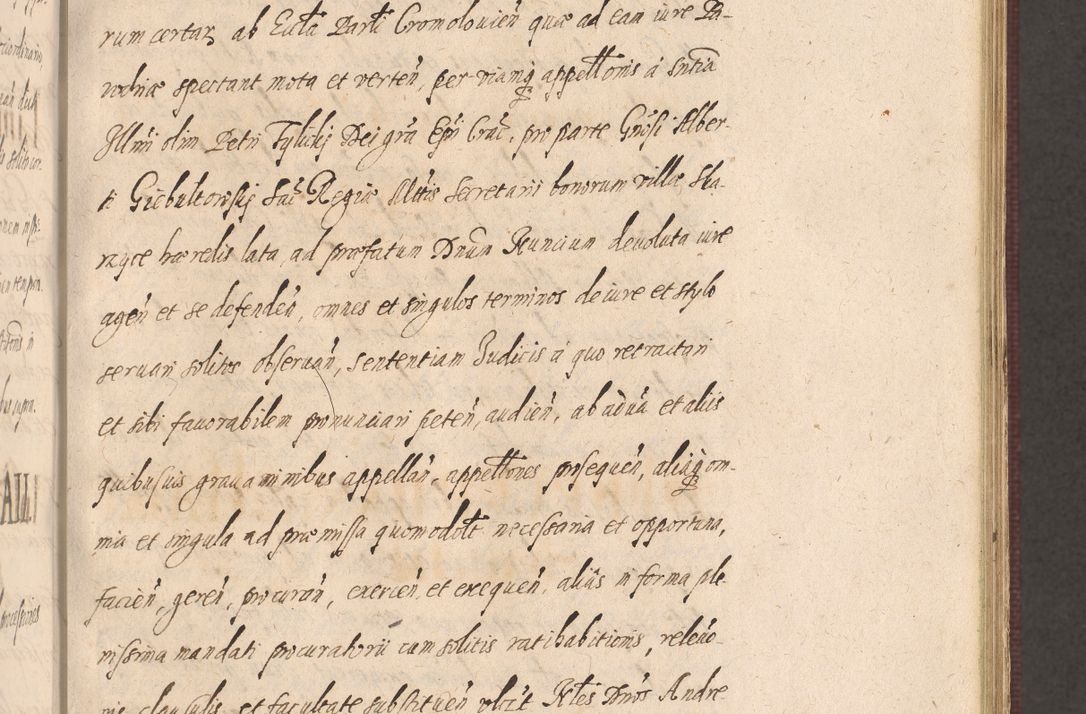 rum certar ab Eccła Parli Cromolouien̄ quæ ad eam iure Pa-
rochiæ spectant mota et verten̄, per viamq appełłonis á sntia
Illmi olim Petri Tylicky Dei gr̃a Epi Crac̃, pro parte Gnosi Alber-
ti Giebultowsky Sac̃ Regiæ Mttis Secretarii bonorum villæ Ska-
rzyce hæredis lata, ad præfatum Dnum Nuncium deuoluta iure
agen̄ et se defenden̄, omnes et singulos terminos de iure et stylo
seruari solitos obseruan̄, sententiam Iudicis á quo retractari
et sibi fauorabilem pronunciari peten̄, audien̄, ab aduā et aliis
quibusuis grauaminibus appellan̄, appełłones prosequen̄, aliaq om-
nia et singula ad præmissa quomodołt necessaria et opportuna,
facien̄, geren̄, procuran̄, exercen̄, et exequen̄, aliās in forma ple
nissima mandati procuratorii cum solitis ratihabitionis, releuō
nis clausulis, et facultate substituen̄ Nłes Dnos Andre